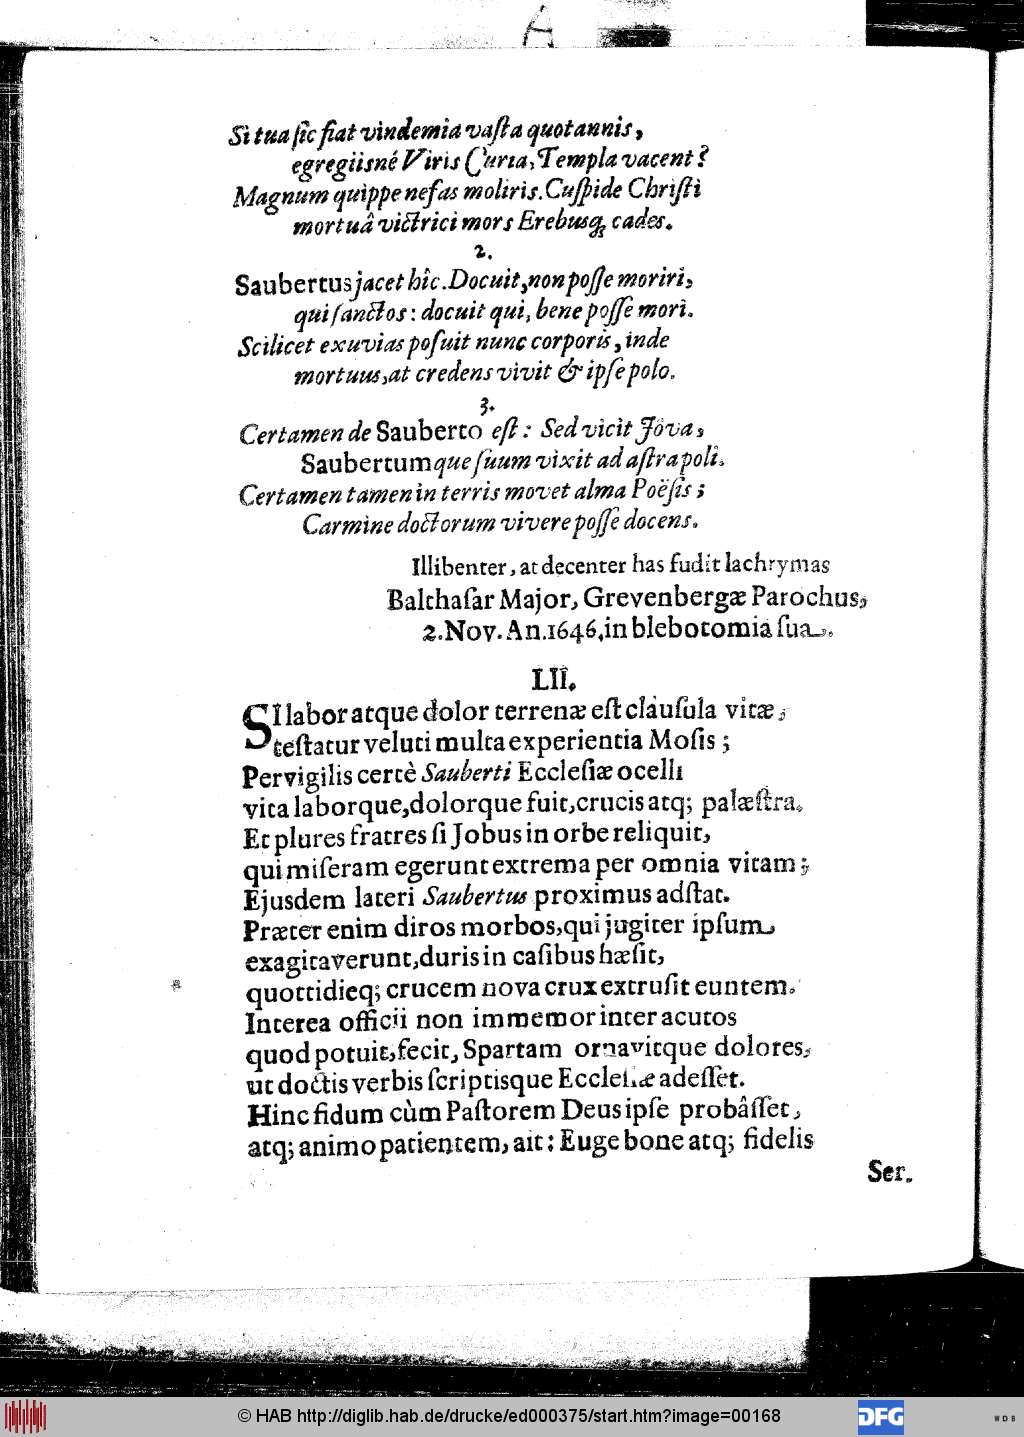 A
Si tua ſic fiat vindemia vaſta quotannis,
egregiisné Viris Curia, Templa vacent?
Magnum quippe nefas moliris. Cuſpide Chriſti
mortuâ victrici mors Erebusq; cades.
2.
Saubertus jacet hîc. Docuit, non poſſe moriri,
qui ſanctos: docuit qui, bene poſſe mori.
Scilicet exuvias poſuit nunc corporis, inde
mortuus, at credens vivit & ipſe polo.
3.
Certamen de Sauberto eſt: Sed vicit Jôva,
Saubertumque ſuum vixit ad aſtra poli.
Certamen tamen in terris movet alma Poëſis;
Carmine doctorum vivere poſſe docens.
Illibenter, at decenter has fudit lachrymas
Balthaſar Major, Grevenbergæ Parochus,
2. Nov. An. 1646. in blebotomia ſua.
LII.
SI labor atque dolor terrenæ eſt clauſula vitæ;
teſtatur veluti multa experientia Moſis;
Pervigilis certè Sauberti Eccleſiæ ocelli
vita laborque, dolorque fuit, crucis atq; palæſtra.
Et plures fratres ſi Jobus in orbe reliquit,
qui miſeram egerunt extrema per omnia vitam;
Ejusdem lateri Saubertus proximus adſtat.
Præter enim diros morbos, qui jugiter ipſum
exagitaverunt, duris in caſibus hæſit,
quottidieq; crucem nova crux extruſit euntem.
Interea officii non immemor inter acutos
quod potuit, fecit, Spartam ornavitque dolores,
ut doctis verbis ſcriptisque Eccleſiæ adeſſet.
Hinc fidum cùm Paſtorem Deus ipſe probâſſet,
atq; animo patientem, ait: Euge bone atq; fidelis
Ser.
© HAB http://diglib.hab.de/drucke/ed000375/start.htm?image=00168
DFG
WDB